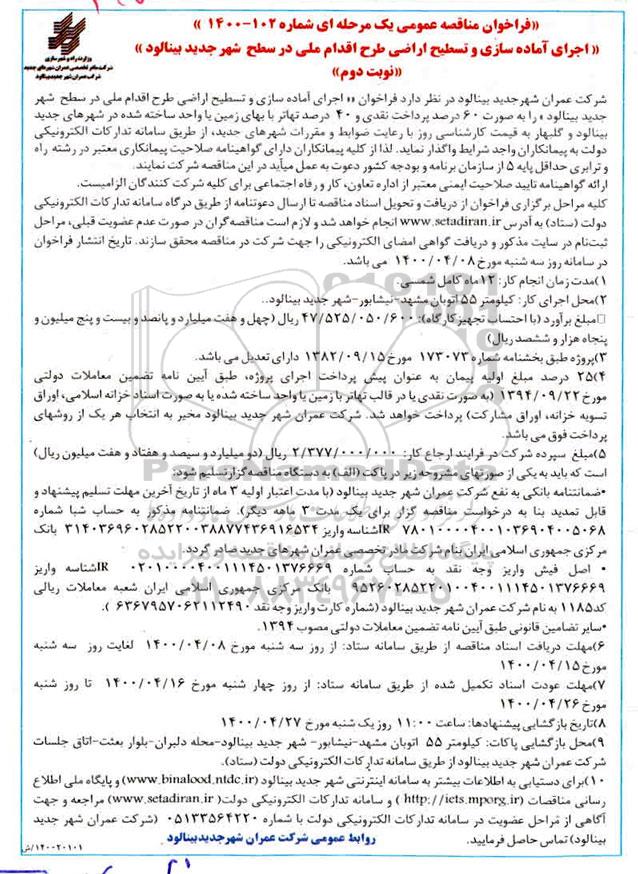 «فراخوان مناقصه عمومی یک مرحله ای شماره ۱۰۲-۱۴۰۰ »
« اجرای آماده سازی و تسطیح اراضی طرح اقدام ملی در سطح شهر جدید بینالود »
«نوبت دوم»
وزارت راه و شهرسازی
شرکت مادر تخصصی عمران شهرهای جدید
شرکت عمران شهر جدید بینالود
شرکت عمران شهر جدید بینالود در نظر دارد فراخوان « اجرای آماده سازی و تسطیح اراضی طرح اقدام ملی در سطح شهر
جدید بینالود » را به صورت ۶۰ درصد پرداخت نقدی و ۴۰ درصد تهاتر با بهای زمین یا واحد ساخته شده در شهرهای جدید
بینالود و گلبهار به قیمت کارشناسی روز با رعایت ضوابط و مقررات شهرهای جدید، از طریق سامانه تدارکات الکترونیکی
دولت به پیمانکاران واجد شرایط واگذار نماید. لذا از کلیه پیمانکاران دارای گواهینامه صلاحیت پیمانکاری معتبر در رشته راه
و ترابری حداقل پایه ۵ از سازمان برنامه و بودجه کشور دعوت به عمل میآید در این مناقصه شرکت نمایند.
ارائه گواهینامه تایید صلاحیت ایمنی معتبر از اداره تعاون، کار و رفاه اجتماعی برای کلیه شرکت کنندگان الزامیست.
کلیه مراحل برگزاری فراخوان از دریافت و تحویل اسناد مناقصه تا ارسال دعوتنامه از طریق درگاه سامانه تدارکات الکترونیکی
دولت (ستاد) به آدرس www.setadiran.ir انجام خواهد شد و لازم است مناقصه گران در صورت عدم عضویت قبلی، مراحل
ثبت‌نام در سایت مذکور و دریافت گواهی امضای الکترونیکی را جهت شرکت در مناقصه محقق سازند. تاریخ انتشار فراخوان
در سامانه روز سه شنبه مورخ ۱۴۰۰/۰۴/۰۸ می باشد.
۱)مدت زمان انجام کار: ۱۲ماه کامل شمسی.
۲)محل اجرای کار: کیلومتر ۵۵ اتوبان مشهد-نیشابور-شهر جدید بینالود..
□مبلغ برآورد (با احتساب تجهیز کارگاه): ۴۷/۵۲۵/۰۵۰/۶۰۰ ریال (چهل و هفت میلیارد و پانصد و بیست و پنج میلیون و
پنجاه هزار و ششصد ریال)
۳)پروژه طبق بخشنامه شماره ۱۷۳۰۷۳ مورخ ۱۳۸۲/۰۹/۱۵ دارای تعدیل می باشد.
۴)۲۵ درصد مبلغ اولیه پیمان به عنوان پیش پرداخت اجرای پروژه، طبق آیین نامه تضمین معاملات دولتی
مورخ ۱۳۹۴/۰۹/۲۲ (به صورت نقدی یا در قالب تهاتر با زمین یا واحد ساخته شده یا به صورت اسناد خزانه اسلامی، اوراق
تسویه خزانه، اوراق مشارکت) پرداخت خواهد شد. شرکت عمران شهر جدید بینالود مخیر به انتخاب هر یک از روشهای
پرداخت فوق می باشد.
۵)مبلغ سپرده شرکت در فرایند ارجاع کار: ۲/۳۷۷/۰۰۰/۰۰۰ ریال (دو میلیارد و سیصد و هفتاد و هفت میلیون ریال)
است که باید به یکی از صورتهای مشروحه زیر در پاکت (الف) به دستگاه مناقصه گزار تسلیم شود:
•ضمانتنامه بانکی به نفع شرکت عمران شهر جدید بینالود (با مدت اعتبار اولیه ۳ ماه از تاریخ آخرین مهلت تسلیم پیشنهاد و
قابل تمدید بنا به درخواست مناقصه گزار برای یک مدت ۳ ماهه دیگر). ضمانتنامه مذکور به حساب شبا شماره
بانک
مرکزی جمهوری اسلامی ایران بنام شرکت مادر تخصصی عمران شهرهای جدید صادر گردد.
• اصل فیش واریز وجه نقد به حساب شماره IR شناسه واریز
بانک مرکزی جمهوری اسلامی ایران شعبه معاملات ریالی
کد۱۱۸۵ به نام شرکت عمران شهر جدید بینالود (شماره کارت واریز وجه نقد ۶۳۶۷۹۵۷۰۶۲۱۱۲۴۹۰ ).
•سایر تضامین قانونی طبق آیین نامه تضمین معاملات دولتی مصوب ۱۳۹۴.
۶)مهلت دریافت اسناد مناقصه از طریق سامانه ستاد: از روز سه شنبه مورخ ۱۴۰۰/۰۴/۰۸ لغایت روز سه شنبه
مورخ ۱۴۰۰/۰۴/۱۵
۷)مهلت عودت اسناد تکمیل شده از طریق سامانه ستاد: از روز چهار شنبه مورخ ۱۴۰۰/۰۴/۱۶ تا روز شنبه
مورخ ۱۴۰۰/۰۴/۲۶
۸)تاریخ بازگشایی پیشنهادها: ساعت ۱۱:۰۰ روز یک شنبه مورخ ۱۴۰۰/۰۴/۲۷
۹)محل بازگشایی پاکات: کیلومتر ۵۵ اتوبان مشهد-نیشابور- شهر جدید بینالود-محله دلبران-بلوار بعثت-اتاق جلسات
شرکت عمران شهر جدید بینالود از طریق سامانه تدارکات الکترونیکی دولت (ستاد).
۱۰)برای دستیابی به اطلاعات بیشتر به سامانه اینترنتی شهر جدید بینالود (www.binalood.ntdc.ir) و پایگاه ملی اطلاع
رسانی مناقصات (http://iets.mporg.ir ) و سامانه تدارکات الکترونیکی دولت( www.setadiran.ir) مراجعه و جهت
آگاهی از مراحل عضویت در سامانه تدارکات الکترونیکی دولت با شماره ۰۵۱۳۳۵۶۴۲۲۰ (شرکت عمران شهر جدید
بینالود) تماس حاصل فرمایید.
روابط عمومی شرکت عمران شهر جدید بینالود
۱۴۰۰۲۰۱۰۱/ش